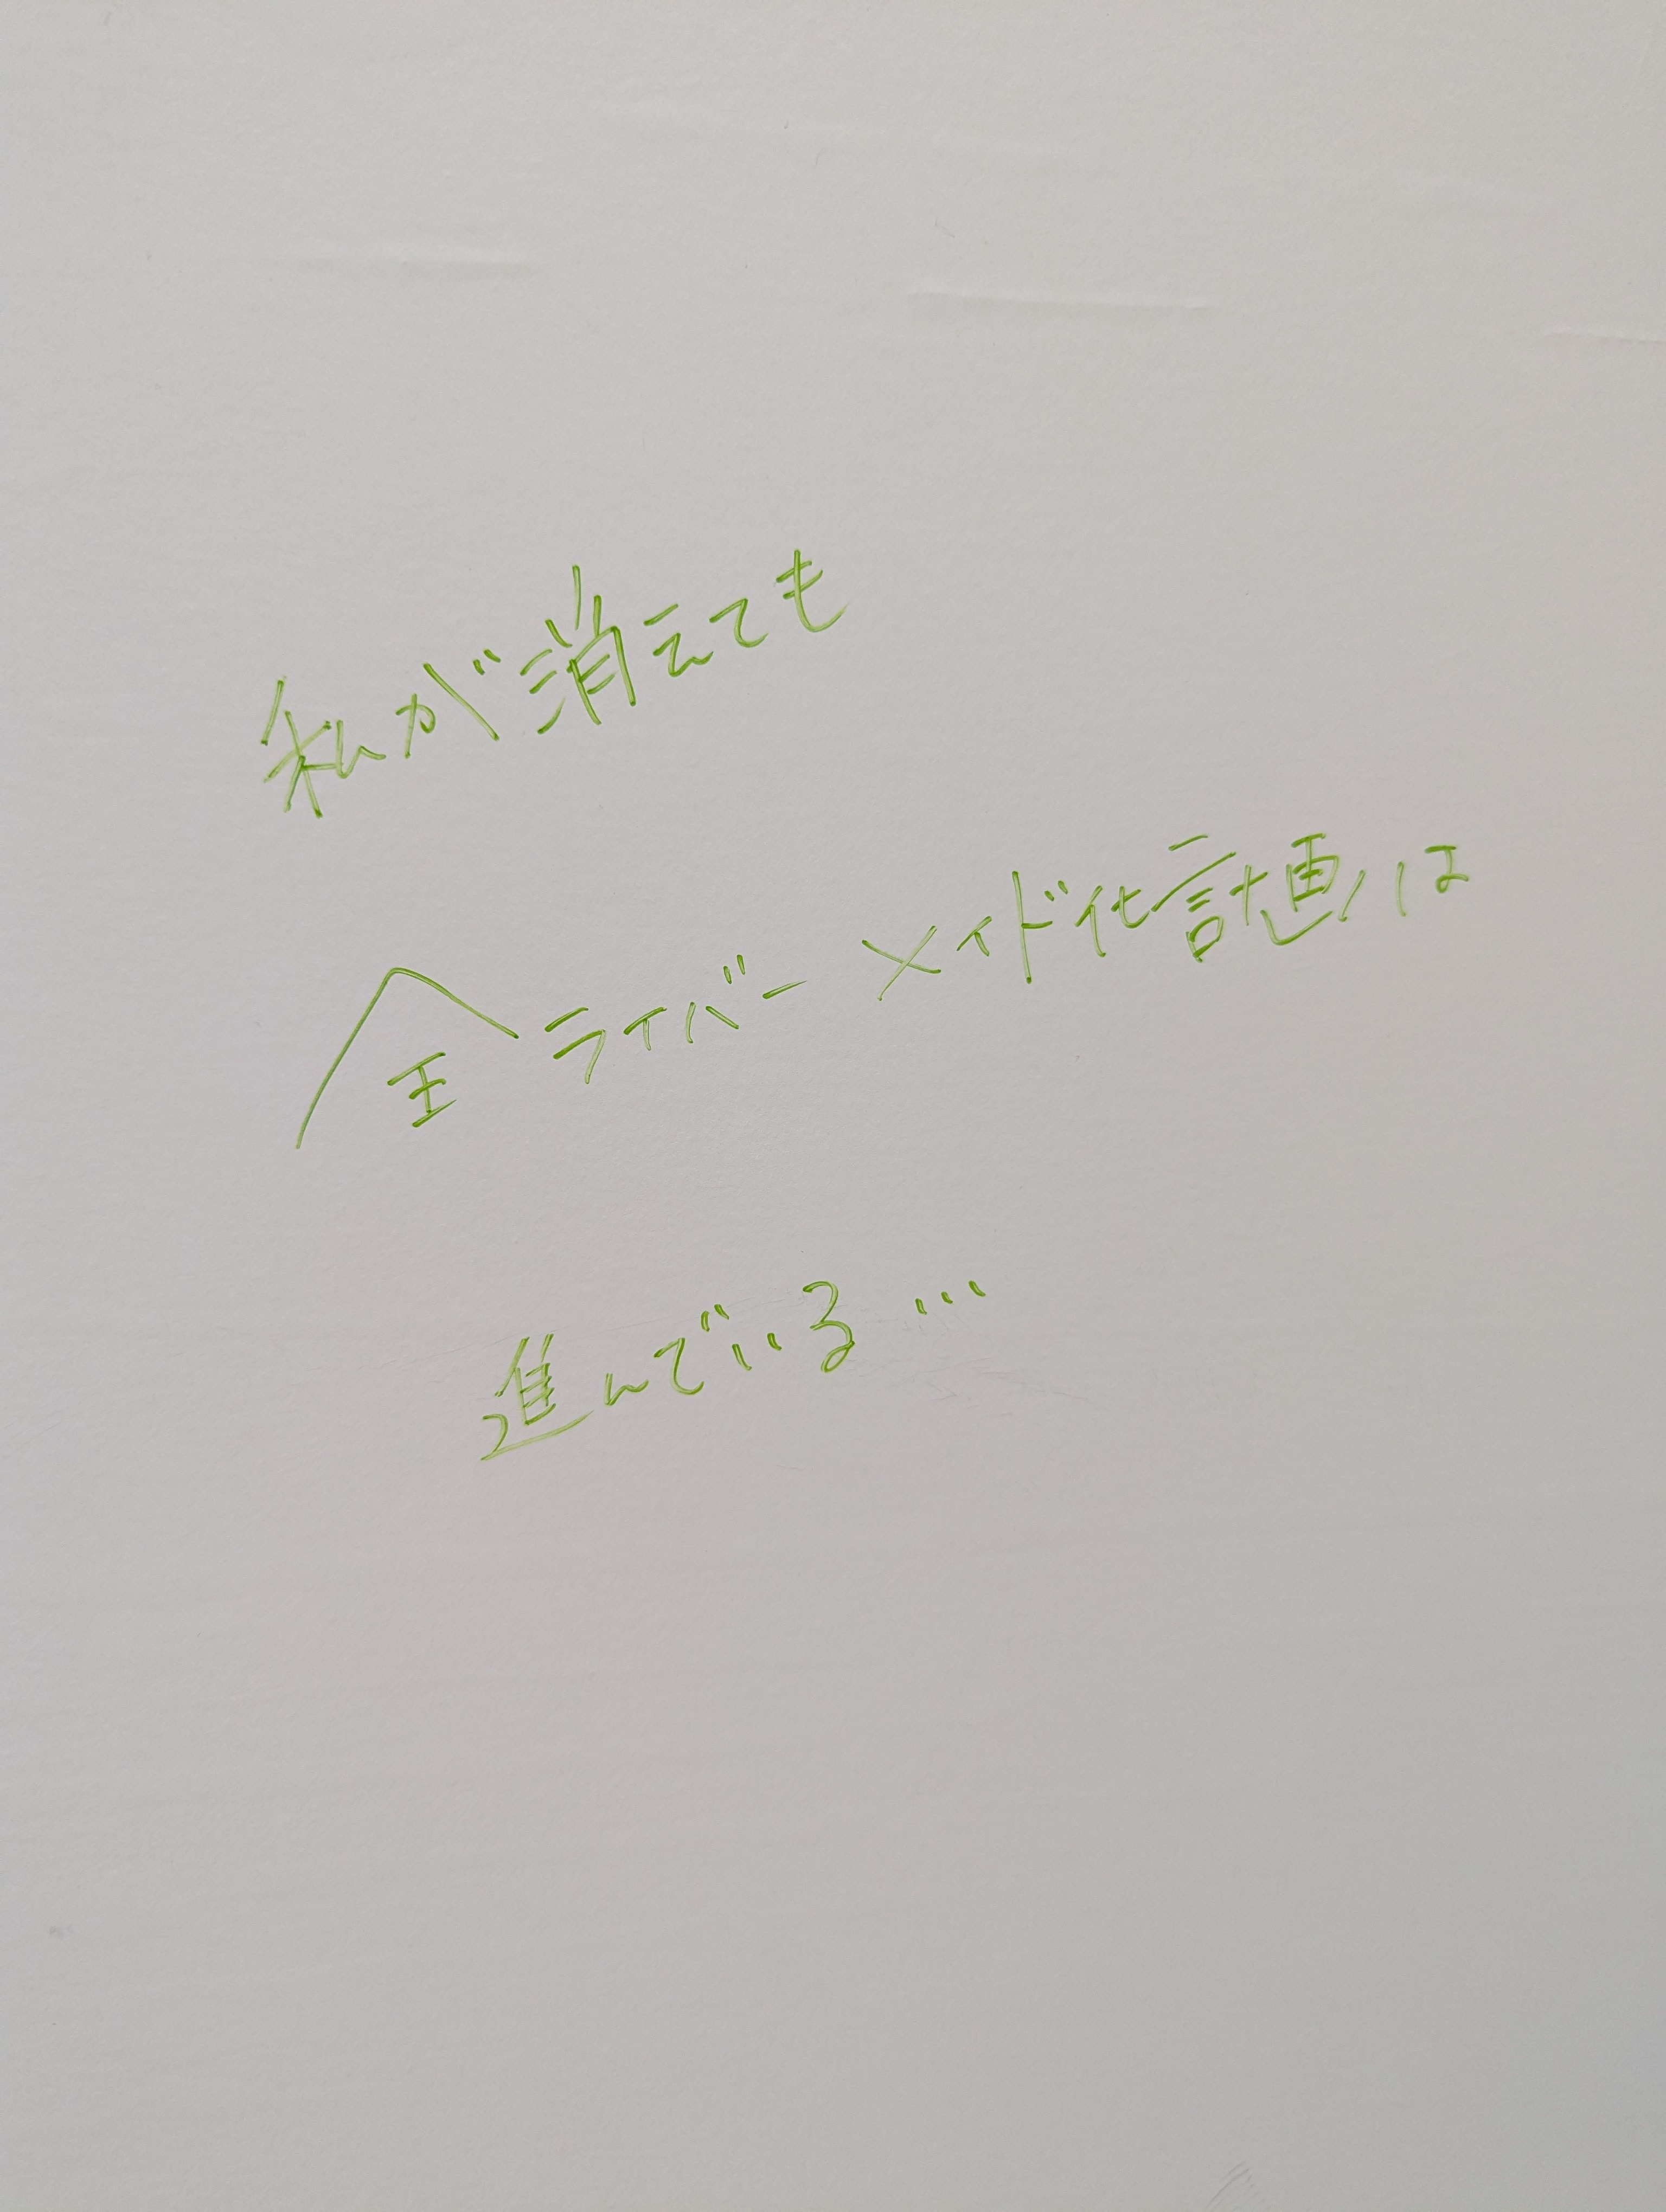 私が消えても
全ライバーメイド化計画は
進んでいる…